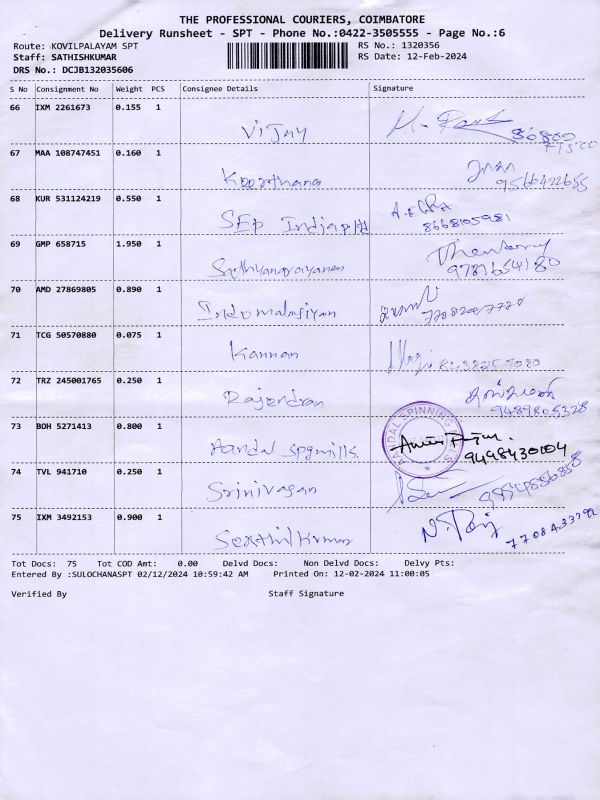 THE PROFESSIONAL COURIERS, COIMBATORE
Delivery Runsheet - SPT - Phone No.:0422-3505555 - Page No.:6
Route: KOVILPALAYAM SPT
RS No.: 1320356
Staff: SATHISHKUMAR
RS Date: 12-Feb-2024
DRS No.: DCJB132035606
S No Consignment No Weight PCS Consignee Details Signature
66 IXM 2261673 0.155 1
Vijay
67 MAA 108747451 0.160 1
Keerthana
9566422685
68 KUR 531124219 0.550 1
SEP India pltd
8668105981
69 GMP 658715 1.950 1
Sathyanarayanan
9787654180
70 AMD 27869805 0.890 1
Indo malasiyan
71 TCG 50570880 0.075 1
Kannan
72 TRZ 245001765 0.250 1
Rajendran
9489805328
73 BOH 5271413 0.800 1
Aandal spgmills.
AANDAL SPINNING MILLS
9498430104
74 TVL 941710 0.250 1
Srinivasan
75 IXM 3492153 0.900 1
Senthil kumar
Tot Docs: 75 Tot COD Amt: 0.00 Delvd Docs: Non Delvd Docs: Delvy Pts:
Entered By :SULOCHANASPT 02/12/2024 10:59:42 AM Printed On: 12-02-2024 11:00:05
Verified By Staff Signature